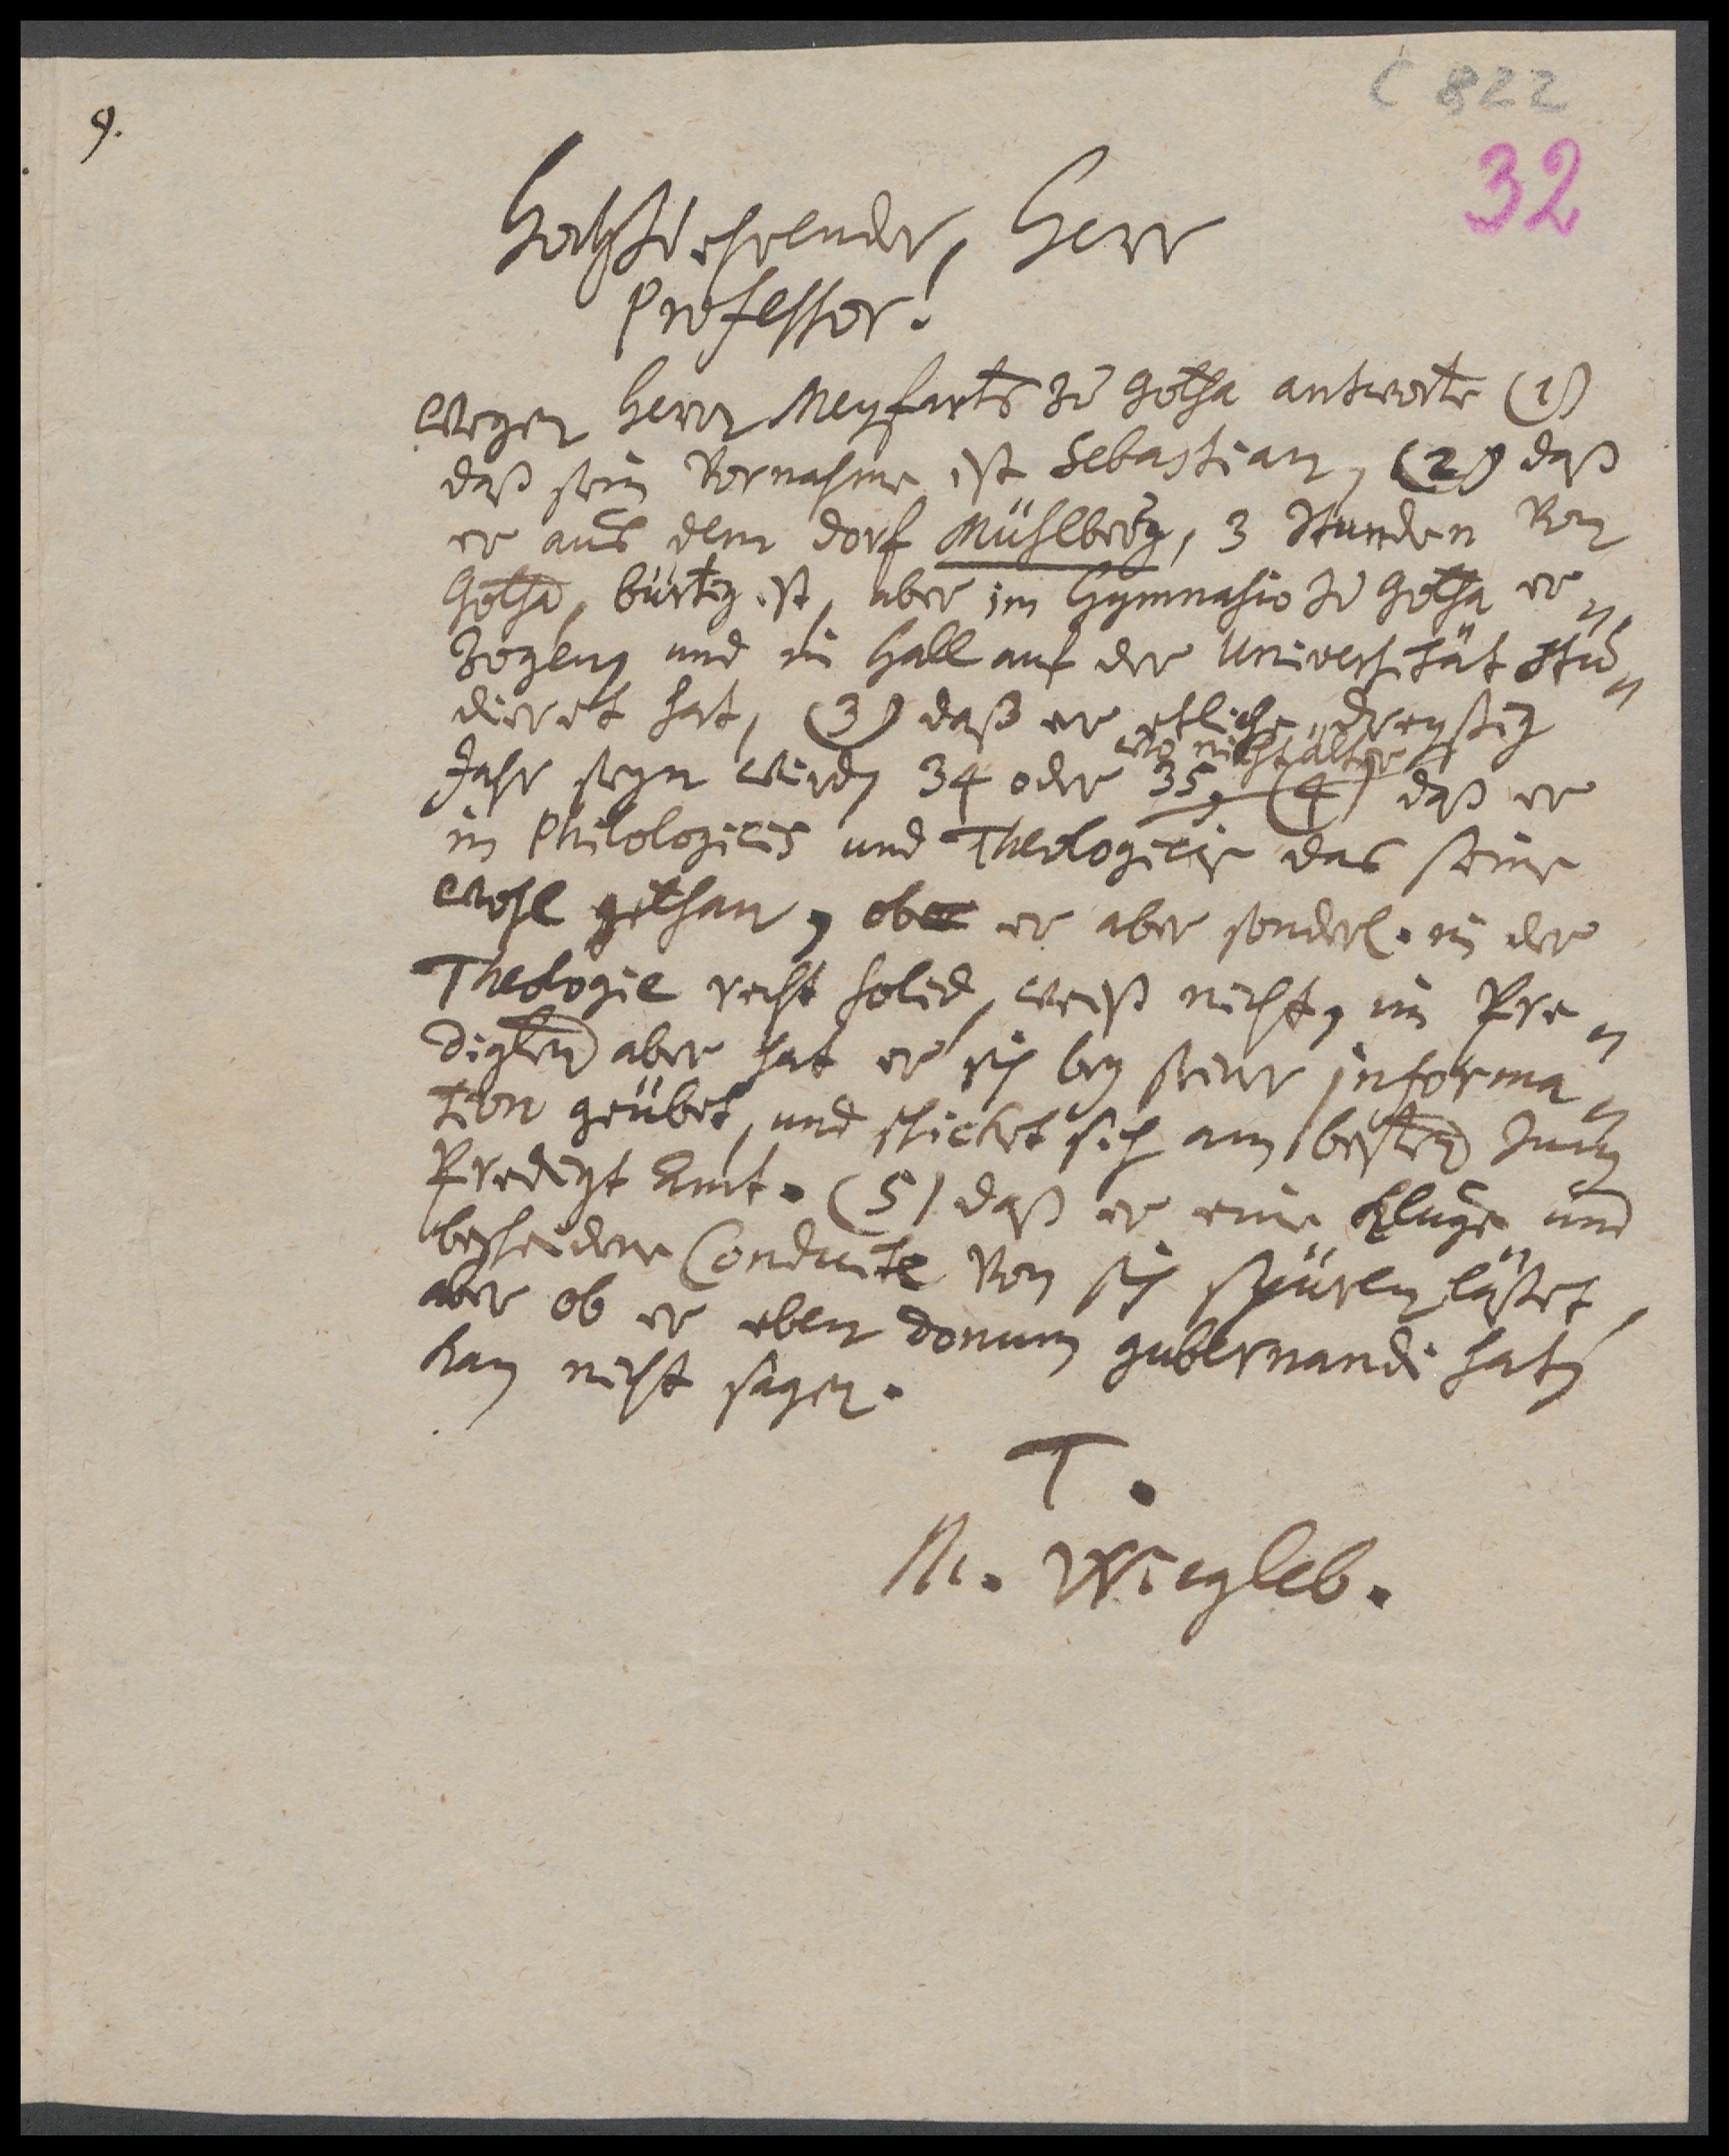 C 822
9.
32
Hochzuehrender, Herr
Professor!
Wegen Herrn Meyfarts zu Gotha antworte (1)
daß sein Vornahme ist Sebastian, (2) daß
er aus dem dorf Mühlberg, 3 Stunden von
Gotha, bürtig ist, aber im Gymnasio zu Gotha er„
zogen, und in Hall auf der Universität stu„
dieret hat, (3) daß er etliche dreyßig
wo nicht älter
Jahr seyn wird, 34 oder 35, (4) daß er
in Philologicis und Theologicis das seine
wohl gethan, ob er aber sonderl. in der
Theologie recht solid, weiß nicht, im Pre„
digen aber hat er sich bey seiner informa„
tion geübet, und schicket sich am besten zum
Predigt Amt. (5) daß er eine kluge und
bescheidene Conduite von sich spüren läßet,
aber ob er eben donum gubernandi hat,
kan nicht sagen.
T.
M. Wiegleb.